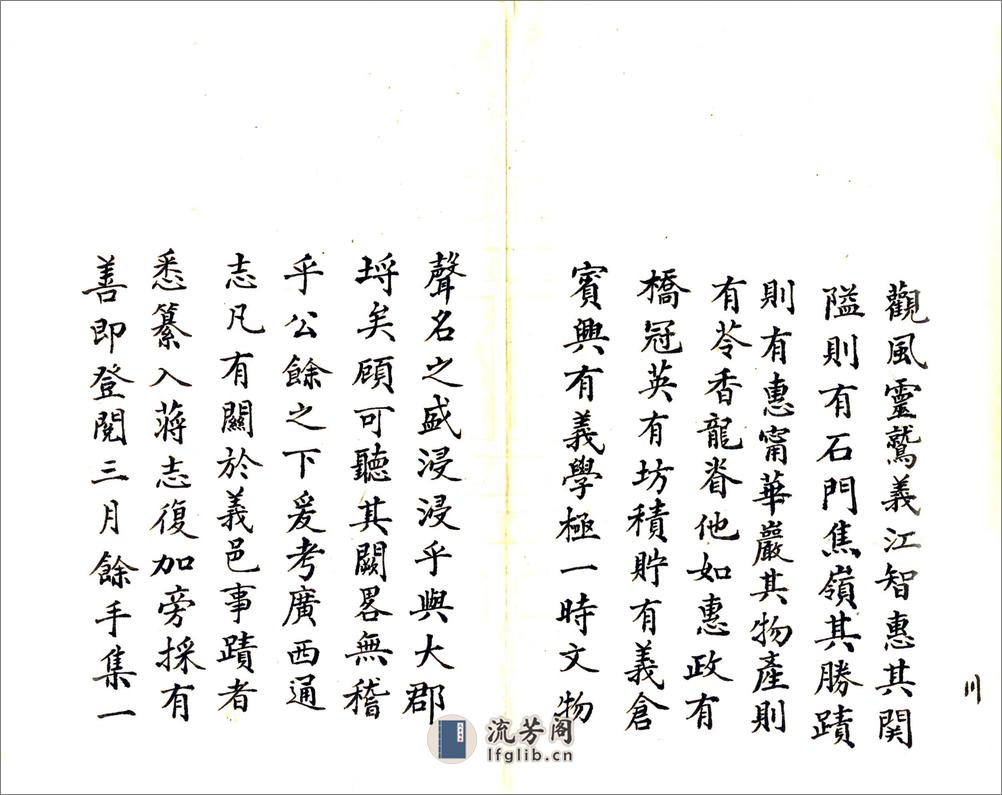 觀風靈鷲義江智惠其関
隘則有石門焦嶺其勝蹟
則有惠甯華嚴其物產則
有苓香龍眷他如惠政有
橋冠英有坊積貯有義倉
賓興有義學極一時文物
聲名之盛浸浸乎與大郡
埒矣顧可聽其闕畧無稽
乎公餘之下爰考廣西通
志凡有關於義邑事蹟者
悉纂入蔣志復加旁採有
善即登閱三月餘手集一
川
流芳阁
lfglib.cn